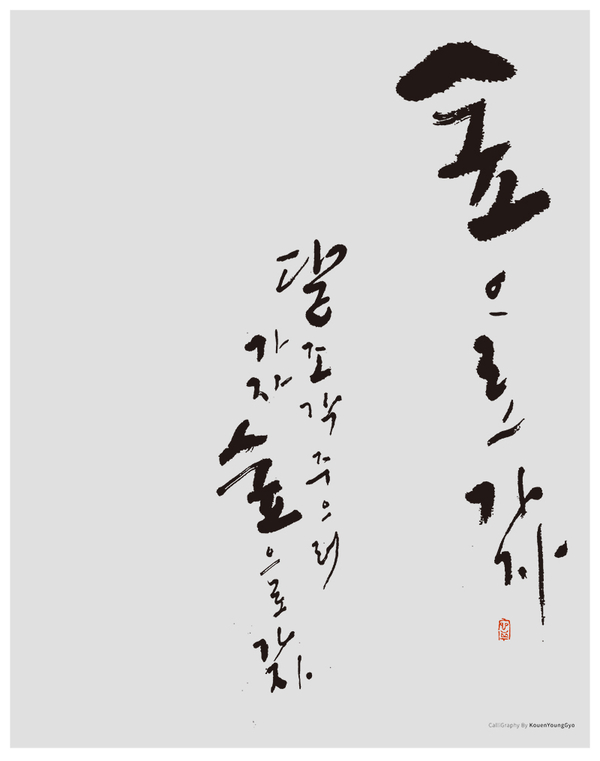 숲으로 가자
달 조각 주으러
가자 숲으로 가자
CalliGraphy By KouenYoungGyo